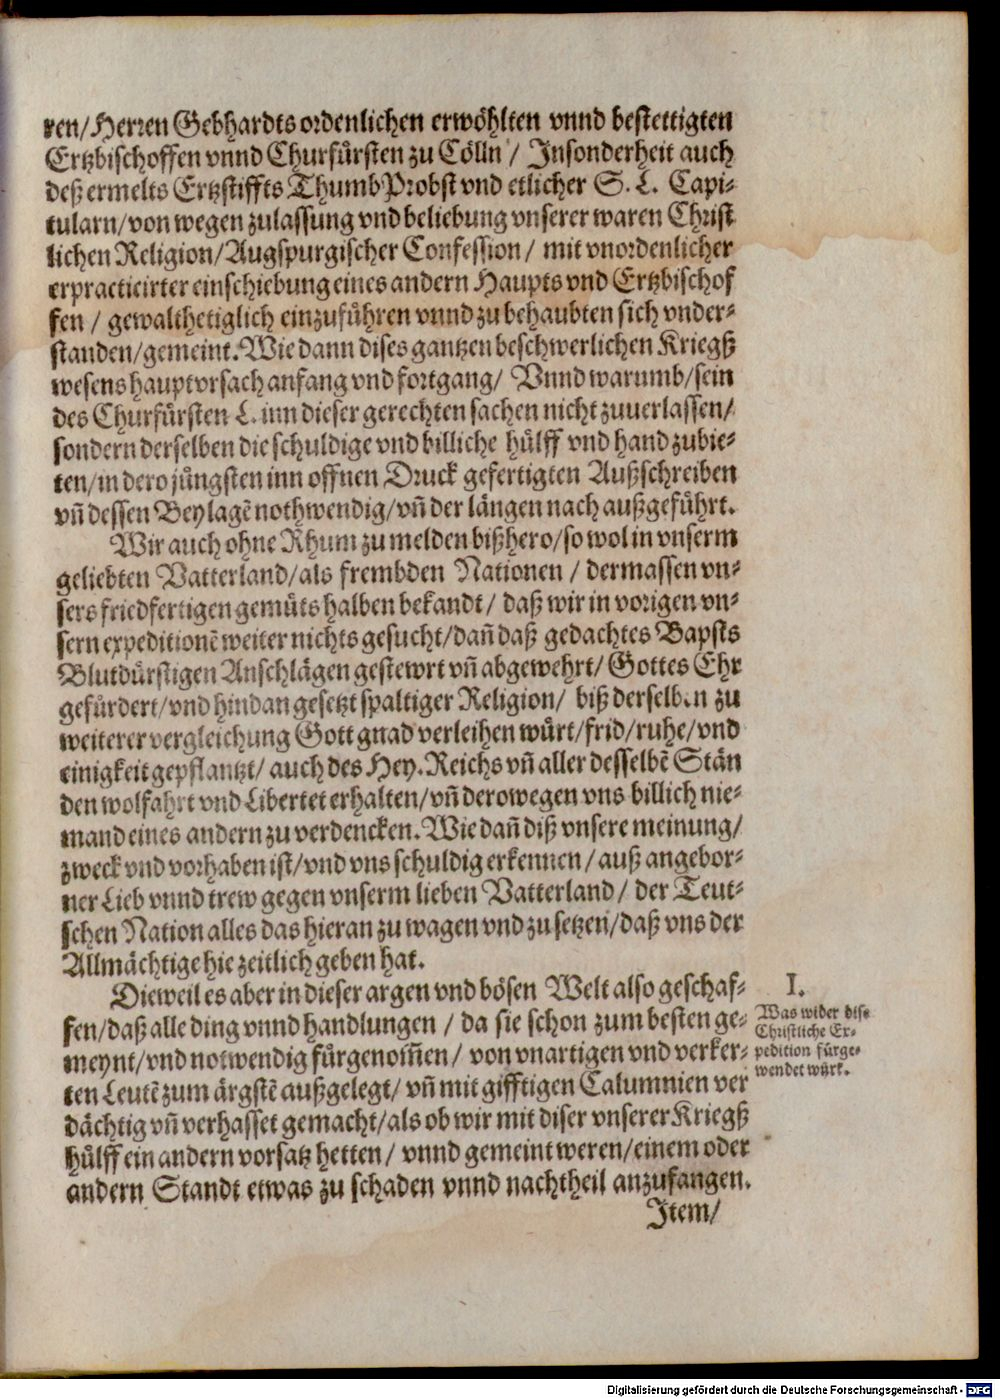 ren/Herren Gebhardts ordenlichen erwöhlten vnnd bestettigten
Ertzbischoffen vnnd Churfürsten zu Cölln / Insonderheit auch
deß ermelts Ertzstiffts ThumbProbst vnd etlicher S. L. Capi-
tularn/von wegen zulassung vnd beliebung vnserer waren Christ
lichen Religion/Augspurgischer Confession / mit vnordenlicher
erpracticirter einschiebung eines andern Haupts vnd Ertzbischof
fen / gewalthetiglich einzuführen vnnd zu behaubten sich vnder-
standen/gemeint. Wie dann dises gantzen beschwerlichen Kriegß
wesens hauptvrsach anfang vnd fortgang/ Vnnd warumb/sein
des Churfürsten L. inn dieser gerechten sachen nicht zuuerlassen/
sondern derselben die schuldige vnd billiche hülff vnd hand zubie-
ten/in dero jüngsten inn offnen Druck gefertigten Außschreiben
vñ dessen Beylagẽ nothwendig/vñ der längen nach außgeführt.
Wir auch ohne Rhum zu melden bißhero/so wol in vnserm
geliebten Vatterland/als frembden Nationen / dermassen vn-
sers friedfertigen gemüts halben bekandt/ daß wir in vorigen vn-
sern expeditionẽ weiter nichts gesucht/dañ daß gedachtes Bapsts
Blutdürstigen Anschlägen gestewrt vñ abgewehrt/ Gottes Ehr
gefürdert/vnd hindan gesetzt spaltiger Religion/ biß derselben zu
weiterer vergleichung Gott gnad verleihen würt/frid/ruhe/vnd
einigkeit gepflantzt/ auch des Hey. Reichs vñ aller desselbẽ Stän
den wolfahrt vnd Libertet erhalten/vñ derowegen vns billich nie-
mand eines andern zu verdencken. Wie dañ diß vnsere meinung/
zweck vnd vorhaben ist/vnd vns schuldig erkennen / auß angebor-
ner Lieb vnnd trew gegen vnserm lieben Vatterland / der Teut-
schen Nation alles das hieran zu wagen vnd zu setzen/daß vns der
Allmächtige hie zeitlich geben hat.
Dieweil es aber in dieser argen vnd bösen Welt also geschaf-
fen/daß alle ding vnnd handlungen / da sie schon zum besten ge-
meynt/vnd notwendig fürgenom̃en / von vnartigen vnd verker-
ten Leutẽ zum ärgstẽ außgelegt/ vñ mit gifftigen Calumnien ver
dächtig vñ verhasset gemacht/als ob wir mit diser vnserer Kriegß
hülff ein andern vorsatz hetten / vnnd gemeint weren/einem oder
andern Standt etwas zu schaden vnnd nachtheil anzufangen.
Item/
I.
Was wider dise
Christliche Ex-
pedition fürge-
wendet würt.
Digitalisierung gefördert durch die Deutsche Forschungsgemeinschaft - DFG